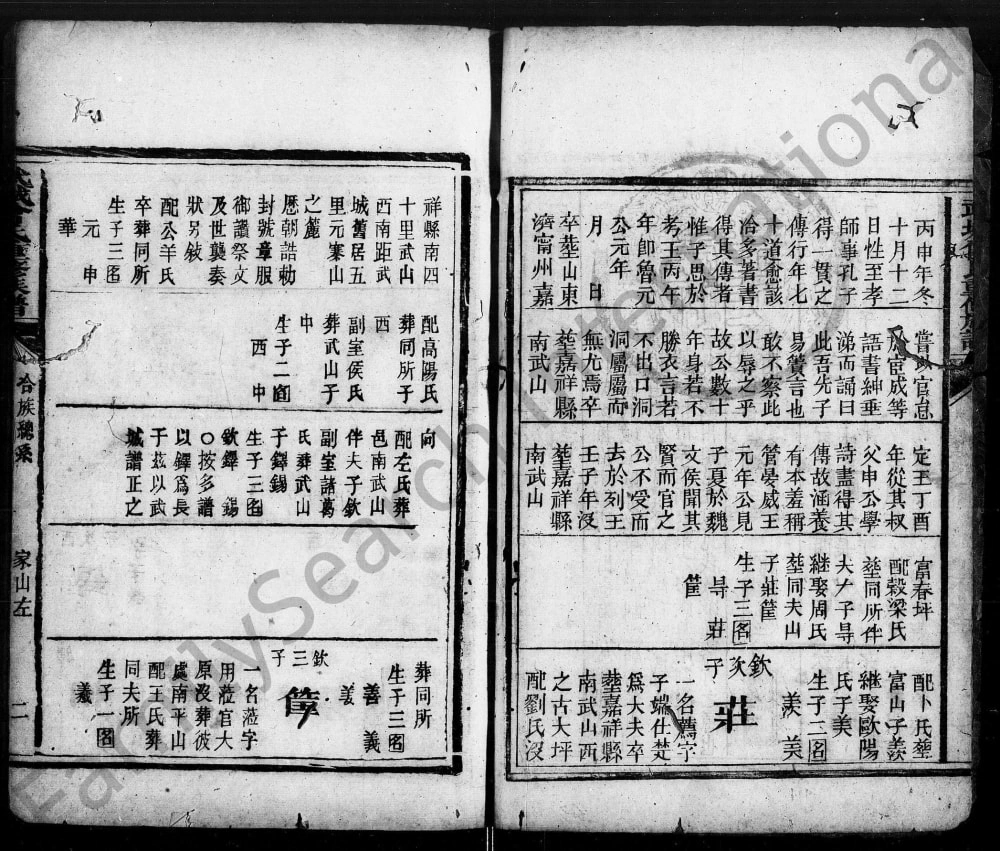 丙申年冬
十月十二
日性至孝
師事孔子
得一貫之
傳行年七
十道愈該
冶多著書
得其傳者
惟子思於
考王丙午
年卽魯元
公元年
月日
卒塟山東
濟甯州嘉
嘗
於宦成等
語書紳垂
涕而誦曰
此吾先子
易簀言也
敢不察此
以辱之乎
故公數十
年身若不
勝衣言若
不出口洞
洞屬屬而
無尤焉卒
塟嘉祥縣
南武山
定王丁酉
年從其叔
父申公學
詩盡得其
傳故涵養
有本羞稱
管晏威王
元年公見
子夏於魏
文侯聞其
賢而官之
公不受而
去於列王
壬子年沒
塟嘉祥縣
南武山
富春坪
配穀梁氏
塟同所伴
夫子㝵
継娶周氏
塟同夫山
子莊篚
生子三名
㝵 莊
篚
配卜氏塟
富山子羨
継娶歐陽
氏子美
生子二名
羨 美
欽次子
莊
一名蔿字
子端仕楚
爲大夫卒
塟嘉祥縣
南武山西
之古大坪
配劉氏沒
祥縣南四
十里武山
西南距武
城舊居五
里元寨山
之麓
歷朝誥勅
封號章服
御讚祭文
及世襲奏
狀另敍
配公羊氏
卒葬同所
生子三名
元 申
華
配高陽氏
葬同所子
西
副室侯氏
葬武山子
申
生子二名
西 申
向
配左氏葬
邑南武山
伴夫子欽
副室諸葛
氏葬武山
子鐸錫
生子三名
欽鐸錫
〇按多譜
以鐸爲長
于茲以武
城譜正之
葬同所
生子三名
善 義
羙
欽三子
一名蒞字
用蒞官大
原沒葬彼
處南平山
配王氏葬
同夫所
生子一名
羲
合族總系
家山左
二
FamilySearch International